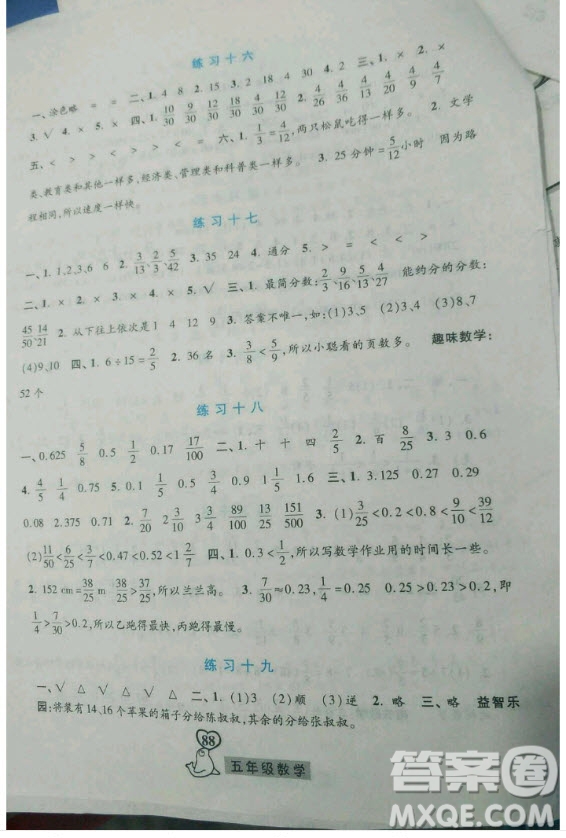 练习十六
一、涂色略 = = 二、1. 4 8 2. 15 3. 2 18 4 30 4. 2 三、1. × 2. ×
3. √ 4. × 5. × 四、1. 10/30 9/30 12/30 18/30 4/30 12/30 2. 4/26 4/36 4/8 4/20 4/90 4/7
五、< > > < > < 六、1. 1/3=4/12,两只松鼠吃得一样多。 2. 文学
类、教育类和其他一样多,经济类、管理类和科普类一样多。 3. 25分钟=5/12小时 因为路
程相同,所以速度一样快。
练习十七
一、1. 1,2,3,6 6 2. 3/13、2/3、5/42 3. 35 24 4. 通分 5. > = < < >
二、1. × 2. × 3. × 4. × 5. √ 三、1. 最简分数:2/3、9/16、5/13、4/27 能约分的分数:
45/50、14/21 2. 从下往上依次是 1 4 12 9 3. 答案不唯一,如:(1)3,5 (2)3,4 (3)8,7
(4)9,10 四、1. 6÷15=2/5 2. 36名 3. 3/8<5/9,所以小聪看的页数多。 趣味数学:
52个
练习十八
一、0.625 5/8 0.5 1/2 0.17 17/100 二、1. 十 十 四 2/5 2. 百 8/25 3. 3 0.6
4. 4/5 1/4 0.75 5. 0.1 1/5 0.5 1/2 1.25 5/4 三、1. 3.125 0.27 0.29
0.08 2.375 0.71 2. 7/20 2 3/10 3 3/4 89/100 13/25 151/500 3. (1)3/25<0.2<0.8<9/10<39/12
(2)11/50<6/25<3/7<0.47<0.52<1 2/5 四、1. 0.3<1/2,所以写数学作业用的时间长一些。
2. 152 cm=38/25 m 38/25>3/2,所以兰兰高。 3. 7/30≈0.23,1/4=0.25 0.25>0.23>0.2,即
1/4>7/30>0.2,所以乙跑得最快,丙跑得最慢。
练习十九
一、√ △ √ △ √ 二、1. (1)3 (2)顺 (3)逆 2. 略 三、略 益智乐
园:将装有14、16个苹果的箱子分给陈叔叔,其余的分给张叔叔。
88
五年级数学
答案圈
MXQE.COM